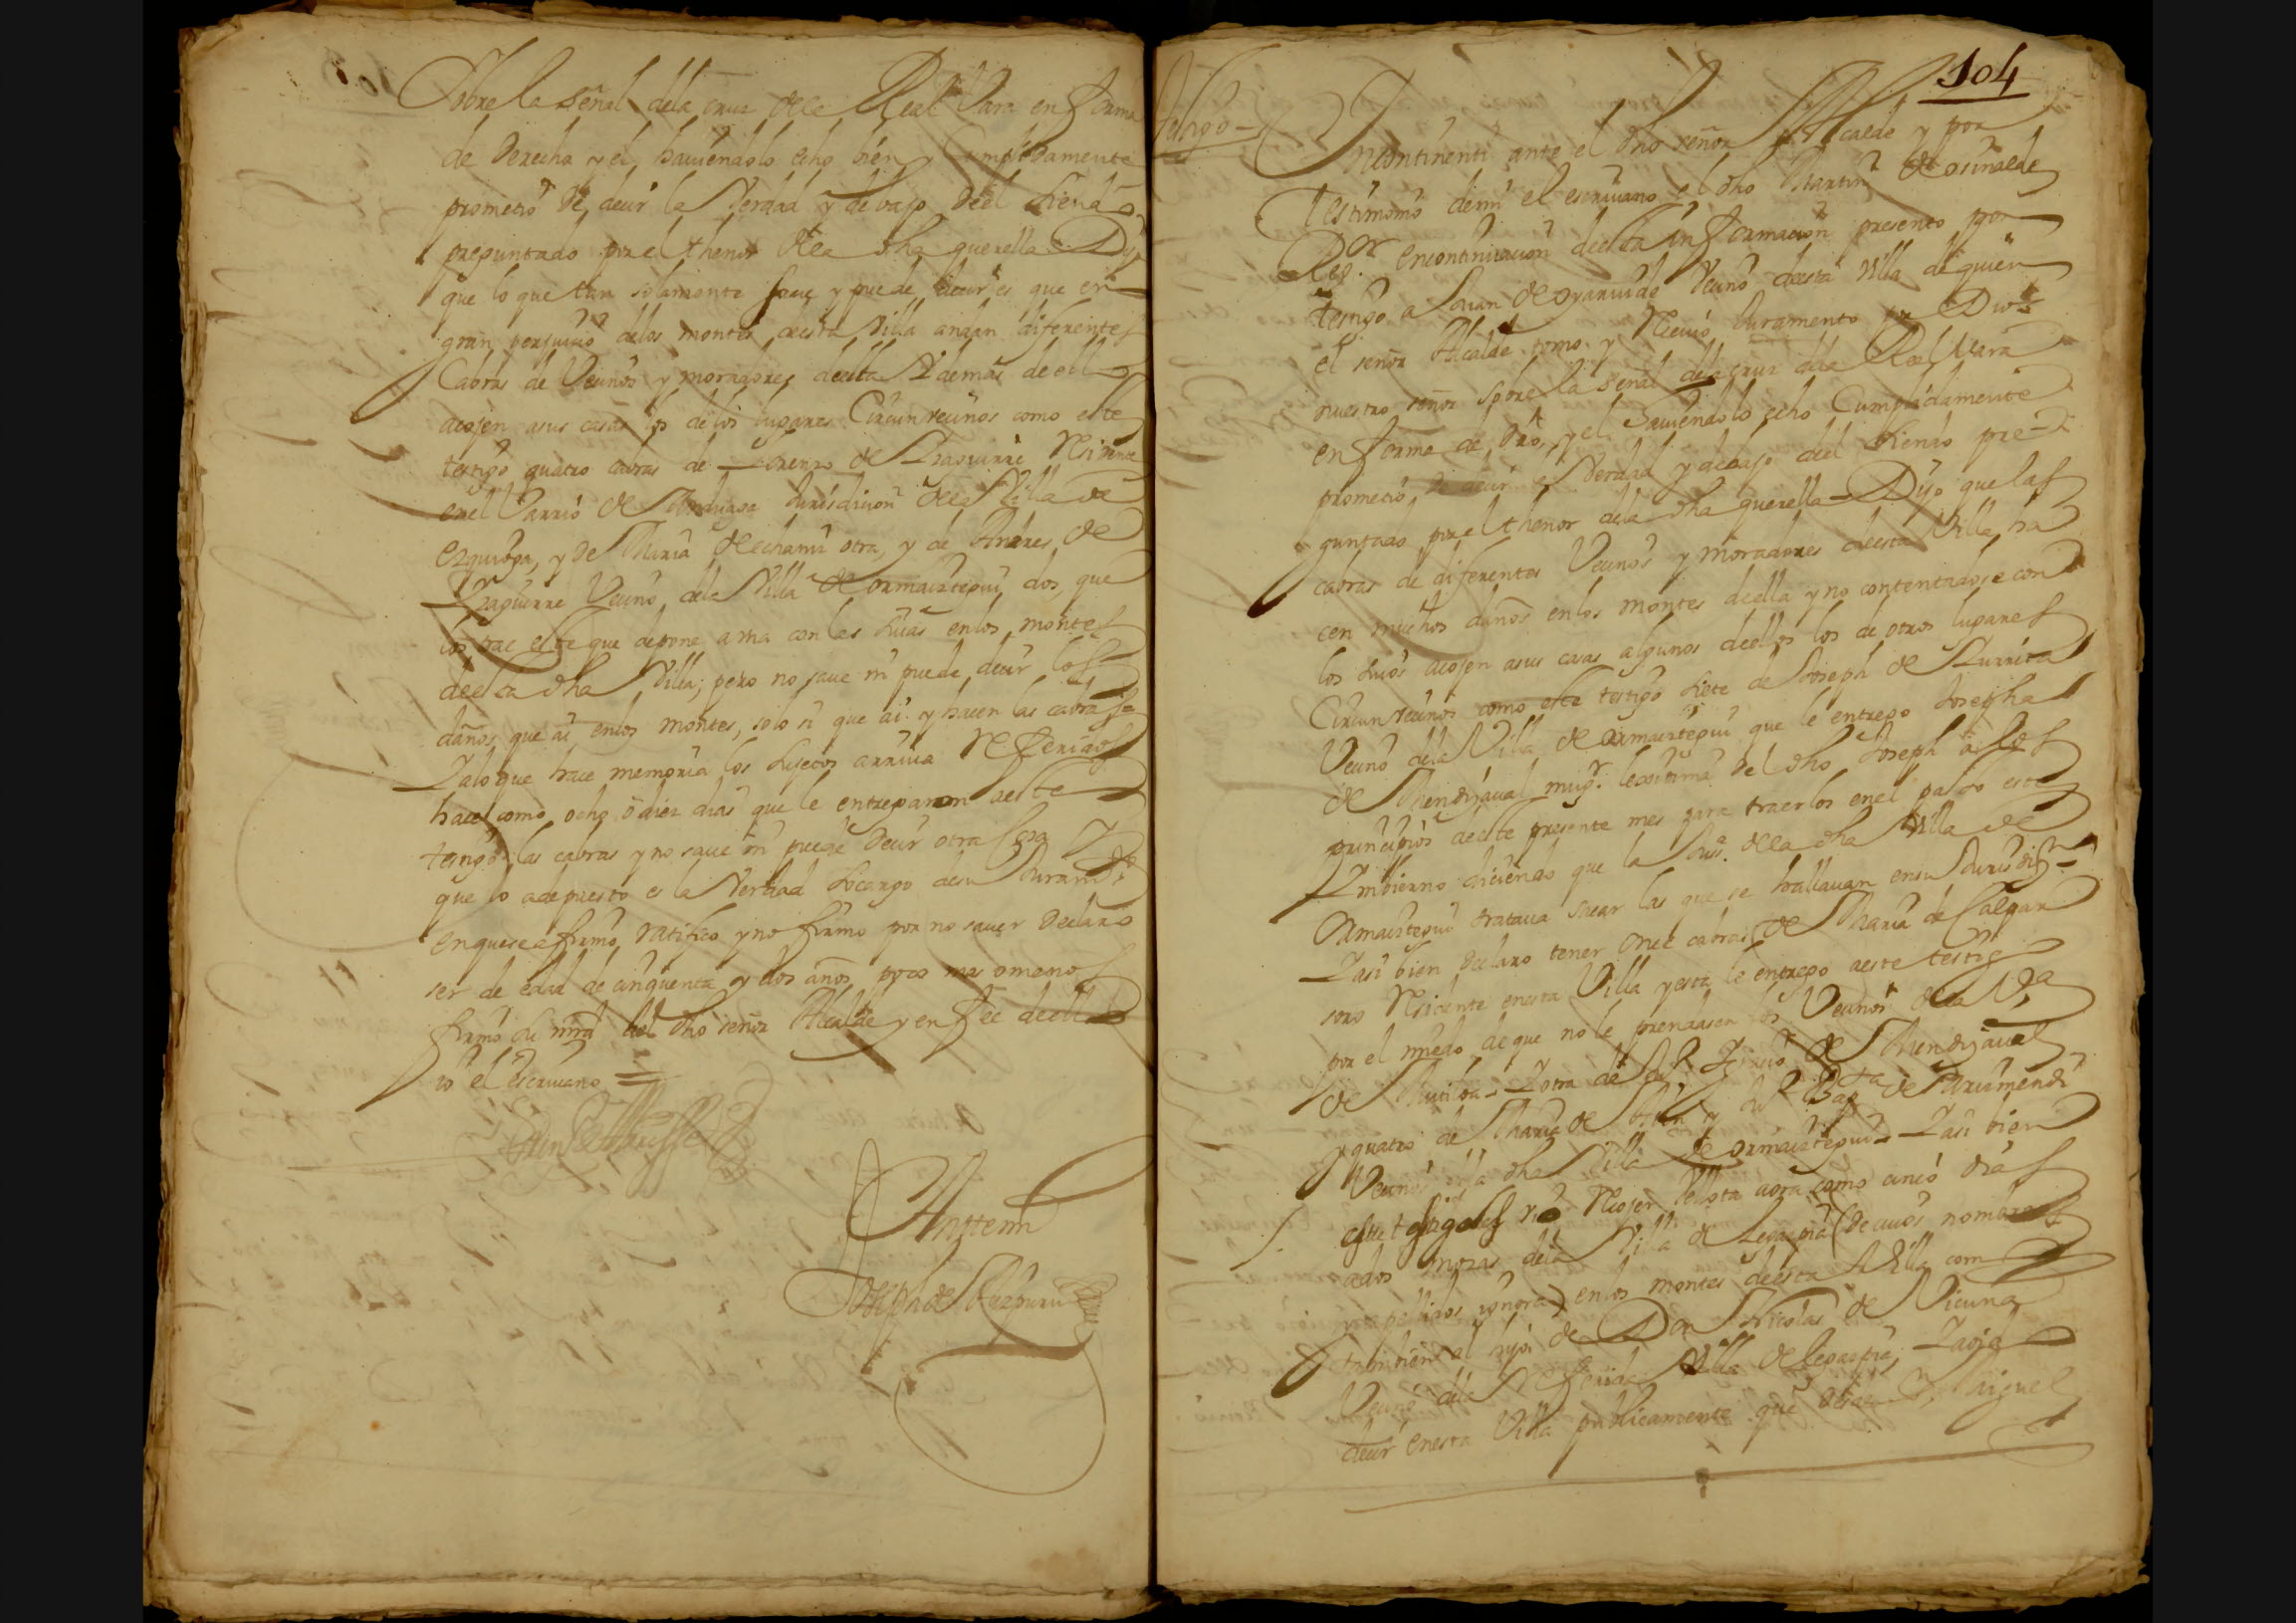 Sobre la señal dela cruz dela Real Vara en forma
de derecho y el, haviendolo echo bien y Cumplidamente
prometió de decir la Verdad y debajo de el siendo
preguntado por el thenor dela dha querella Dijo
que lo que tan solamente save y puede decir es que en
gran perjuicio delos montes deesta Villa andan diferentes
Cabras de Vecinos y moradores deella Ademas de ello
acojen asus casas los de los lugares Circunvecinos como este
testigo quatro cabras de Lorenzo de Yzaguirre Residente
enel Varrio de Anduaga Jurisdicion dela Villa de
Ezquioga, y de Maria de echarri otra, y de Andres de
Yzaguirre Vecino dela Villa de ormaiztegui dos, que
los trae este que depone a una con las suias enlos montes
deesta dha Villa; pero no save ni puede decir los
daños que ai enlos montes, solo si que ai y hacen las cabras
Y alo que hace memoria los sujetos arriva Referidos
hace como ocho o diez dias que le entregaron aeste
testigo las cabras y no save ni puede decir otra Cosa Y
que lo adepuesto es la Verdad socargo desu Juramto
enquese afirmó, ratificó y no firmó por no saver declaró
ser de edad de cinquenta y dos años poco mas omenos
firmó su mrd del dho señor Alcalde y en fee deello
io el escrivano =
Antemi
Joseph de Aizpuru
104
testigo
Incontinenti ante el dho señor Alcalde y por
Testimonio demi el escrivano el dho Martin de osinalde
Regor encontinuacion deesta informacion presentó por
testigo a Juan de oyarvide Vecino deesta Villa dequien
el señor Alcalde tomó y Recivió Juramento por Dios
nuestro señor sobre la señal dela cruz dela Real Vara
en forma de dro, y el haviendolo echo Cumplidamente
prometió de decir Verdad y debajo deel siendo pre-
guntado por el thenor dela dha querella Dijo que las
cabras de diferentes Vecinos y moradores deesta Villa, ha
cen muchos daños enlos montes deella y no contentandose con
los suios acojen asus casas algunos deellos los de otros lugares
Circunvecinos como este testigo siete de Joseph de Yurrita
Vecino dela Villa de ormaiztegui que le entrego Josepha
de Mendijaval mugr. lexitima del dho Joseph a los
principios deeste presente mes para traerlos enel pasto este
Ynbierno diciendo que la Jusa. dela dha Villa de
Ormaiztegui tratava sacar las que se hallavan ensu Jurisdion
Y asi bien declaro tener onze cabras de Maria de
Residente enesta Villa y esta le entregó aeste testigo
por el miedo de que no le prendasen los Vecinos dela Va
de Mutiloa Y otra de de Mendijaval
y quatro de Maria de y Bapta de Ariamendi
Vecinos dela dha Villa de ormaiztegui Y asi bien
este testigo vio Recojer Vellota aora como cinco dias
ados mozas dela Villa de Legazpia (decuios nombres
y apellidos ignora) enlos montes deesta Villa com
tambien al hijo de Don Nicolas de Vicuna
Vecino dela Referida Villa de legazpia, Y aoido
decir enesta Villa publicamente que Miguel